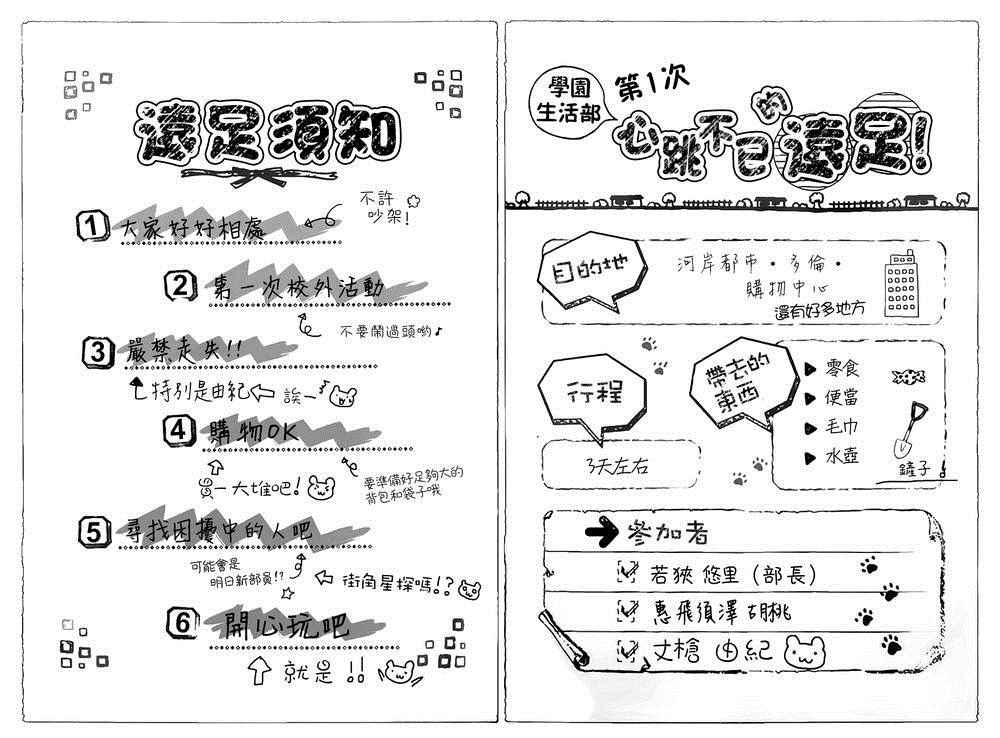 遠足須知
1 大家好好相處
不許
吵架!
2 第一次校外活動
不要鬧過頭喲♪
3 嚴禁走失!!
特別是由紀
誒—
4 購物OK
買一大堆吧!
要準備好足夠大的
背包和袋子哦
5 尋找困擾中的人吧
可能會是
明日新部員!?
街角星探嗎!?
6 開心玩吧
就是!!
學園
生活部
第1次
心跳不已的遠足!
目的地
河岸都市・多倫・
購物中心
還有好多地方
行程
3天左右
帶去的
東西
零食
便當
毛巾
水壺
鏟子!
參加者
若狹 悠里(部長)
惠飛須澤 胡桃
丈槍 由紀